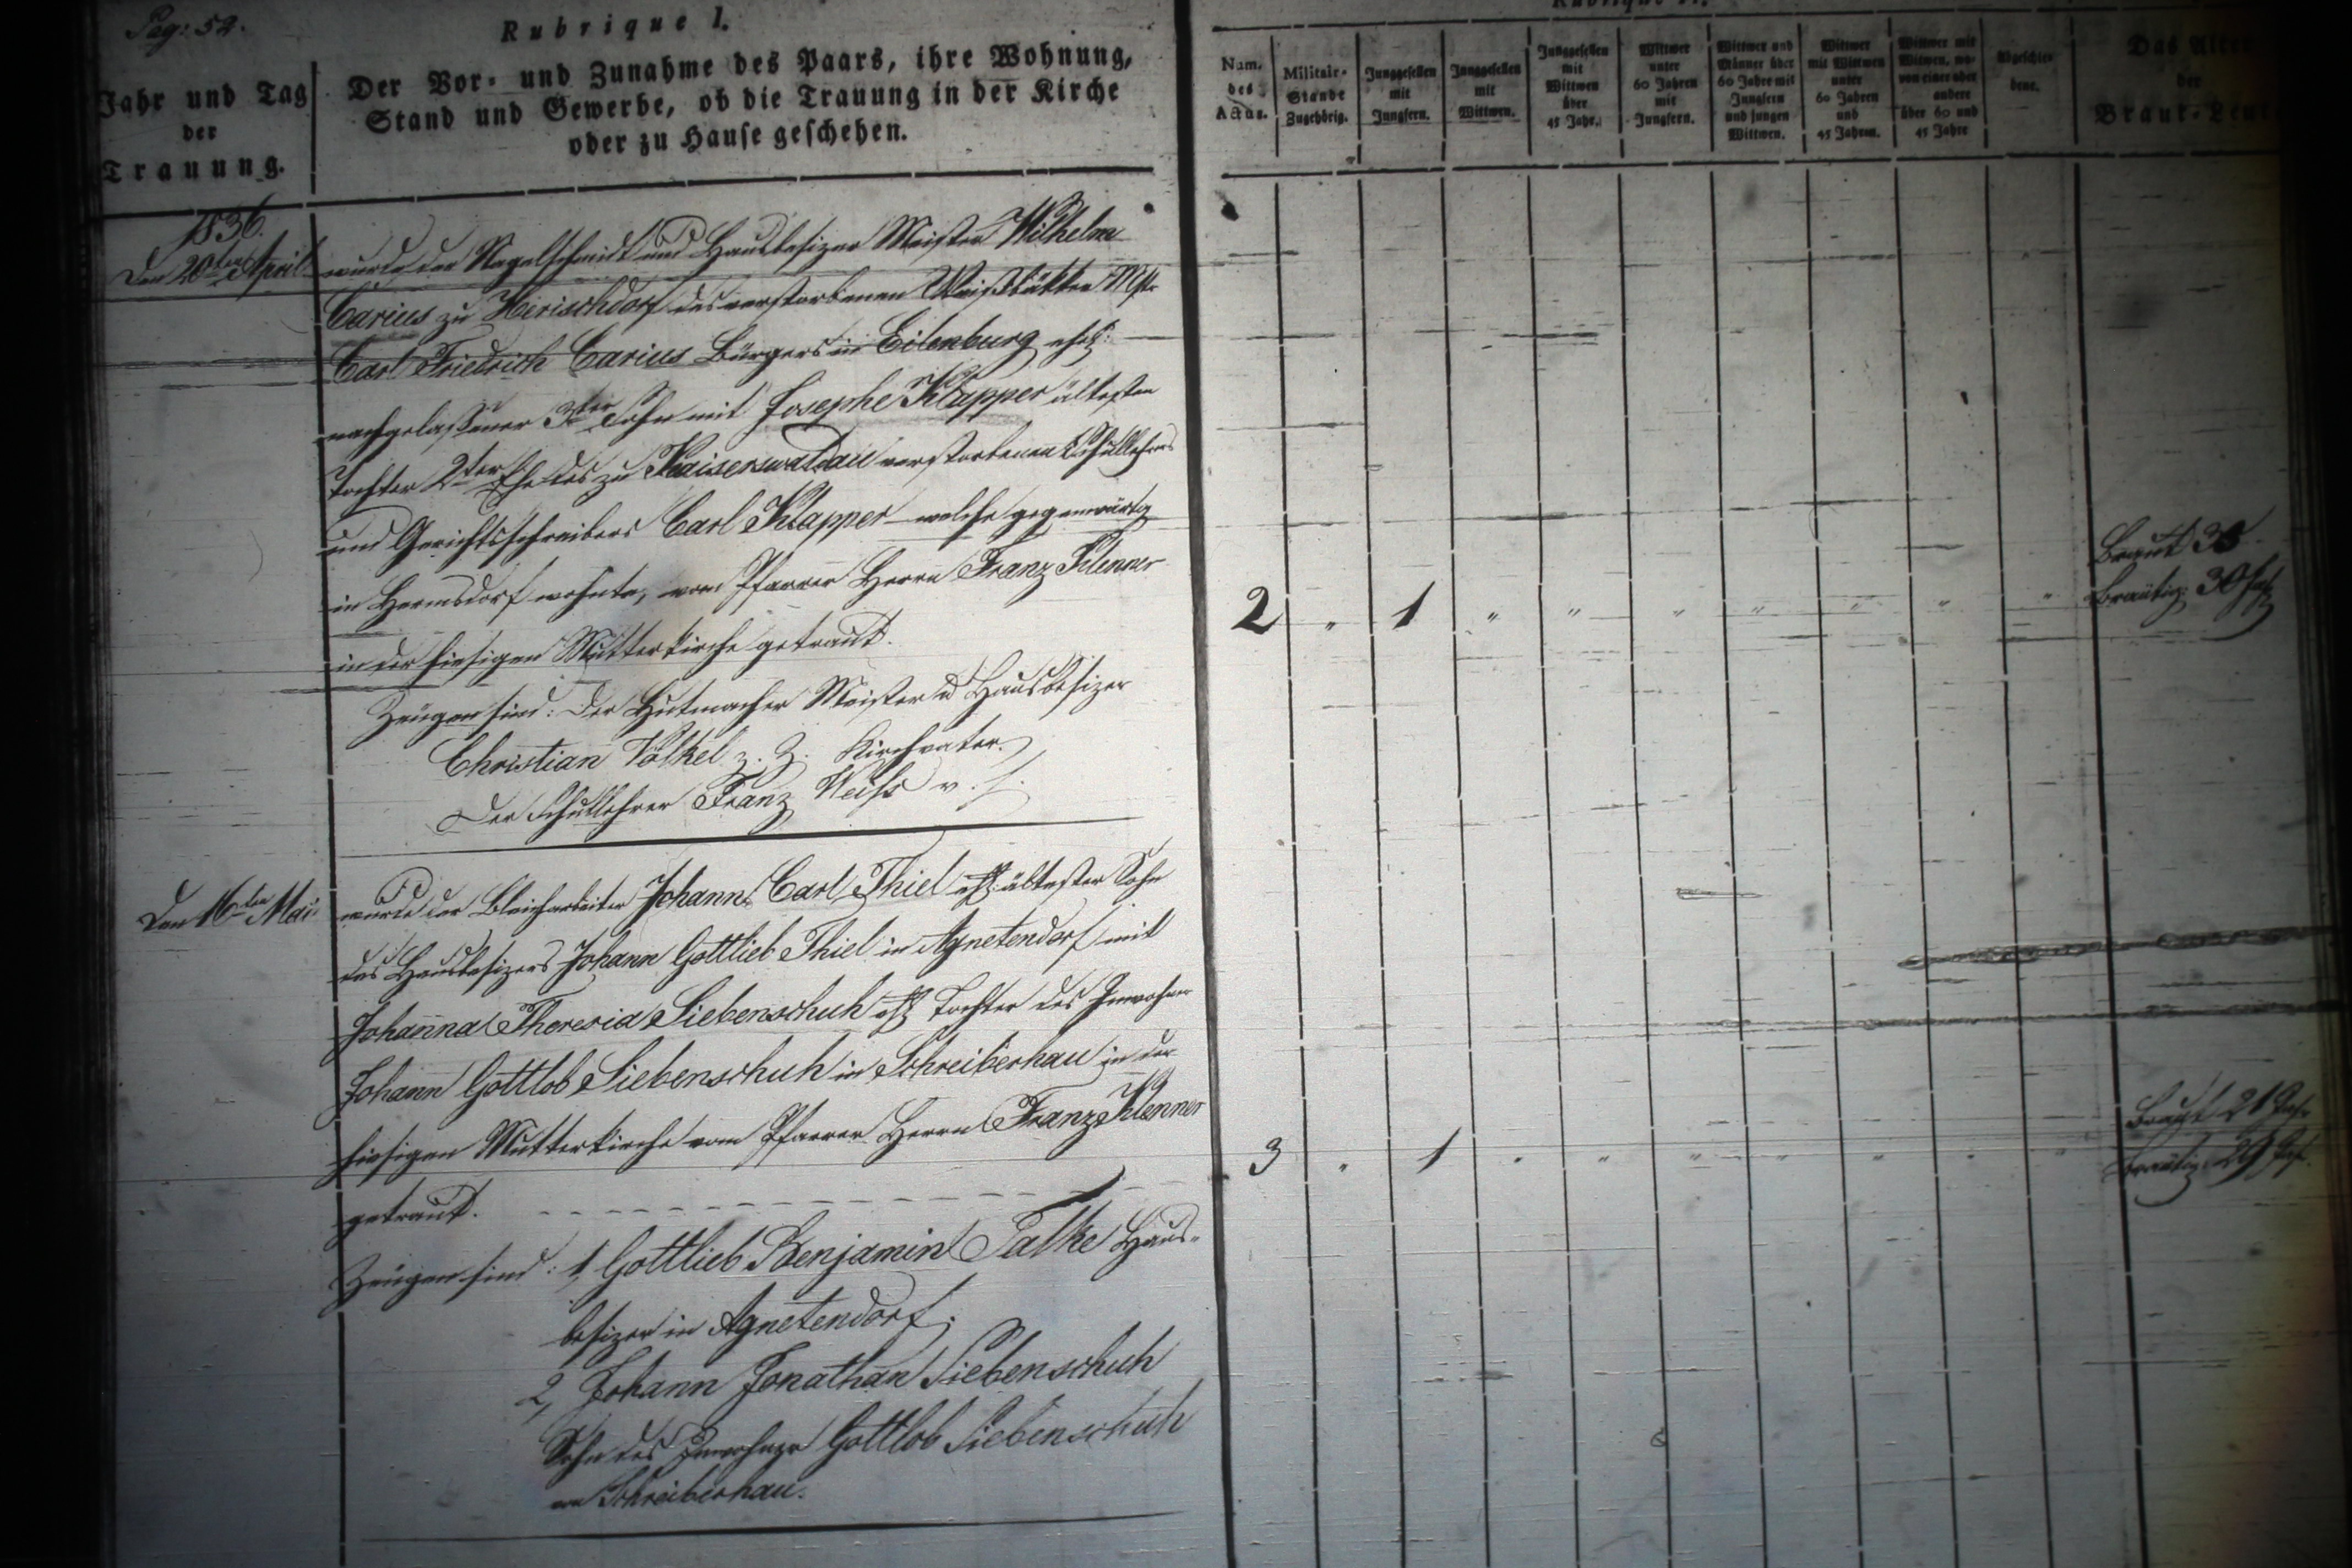 Pag: 52.
Rubrique I.
Jahr und Tag
der
Trauung.
Der Vor- und Zunahme des Paars, ihre Wohnung,
Stand und Gewerbe, ob die Trauung in der Kirche
oder zu Hause geschehen.
Num.
des
Actus.
Militair-
Stande
Zugehörig.
Junggesellen
mit
Jungfern.
Junggesellen
mit
Wittwen.
Junggesellen
mit
Wittwen
über
45 Jahr.
Wittwer
unter
60 Jahren
mit
Jungfern.
Wittwer und
Männer über
60 Jahre mit
Jungfern
und jungen
Wittwen.
Wittwer
mit Wittwen
unter
60 Jahren
und
45 Jahren.
Wittwer mit
Witwen, wo-
von einer oder
andere
über 60 und
45 Jahre
Abgeschie-
dene.
Das Alter
der
Braut-Leut
1836.
Den 20ten April
wurde der Nagelschmidt und Hausbesizer Meister Wilhelm
Carius zu Herischdorf des verstorbenen Weißbäkker Mstr
Carl Friedrich Carius Bürgers in Eilenburg ehel:
nachgelaßener 3ter Sohn mit Josephe Klapper ältesten
Tochter 2ter Ehe des zu Kaiserswaldau verstorbenen Schullehrers
und Gerichtsschreibers Carl Klapper welche gegenwärtig
in Hermsdorf wohnte, vom Pfarrer Herrn Franz Klenner
in der hiesigen Mutterkirche getraut.
Zeugen sind: Der Hutmacher Meister u Hausbesizer
Christian Völkel z. Z. Kirchvater.
Der Schullehrer Franz Weiß v. h.
2 " 1 " " " " " " "
Braut 38
Bräutig: 30 Jah
Den 16ten Mai
wurde der Bleicharbeiter Johann Carl Thiel ehl: ältester Sohn
des Hausbesizers Johann Gottlieb Thiel in Agnetendorf mit
Johanna Theresia Siebenschuh ehl Tochter des Inwohner
Johann Gottlob Siebenschuh in Schreiberhau in der
hiesigen Mutterkirche vom Pfarrer Herrn Franz Klenner
getraut.
Zeugen sind: 1, Gottlieb Benjamin Falke Haus-
besizer in Agnetendorf;
2, Johann Jonathan Siebenschuh
Sohn des Inwohner Gottlob Siebenschuh
in Schreiberhau.
3 " 1 " " " " " " "
Braut 21 Jah
Bräutig: 29 Jah.